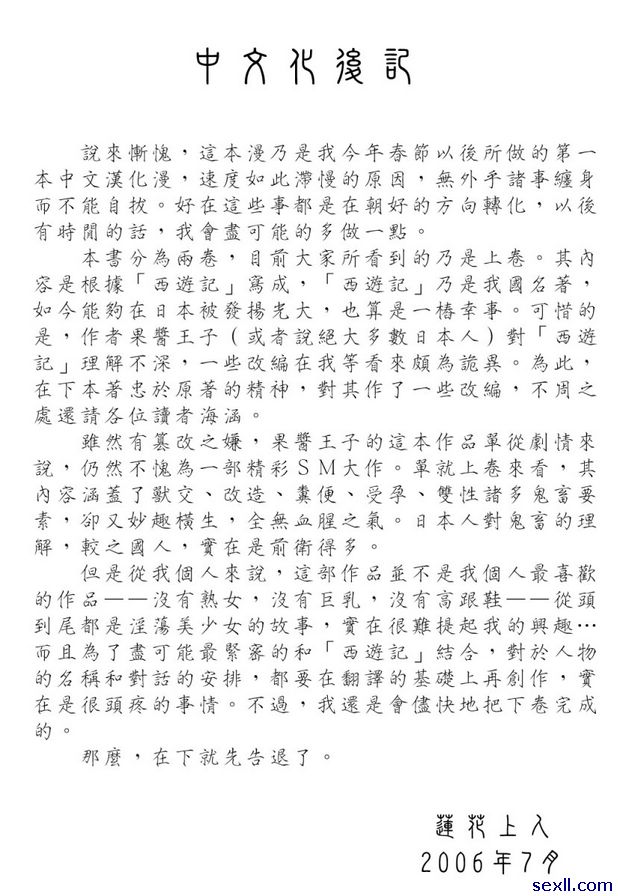 中文化後記
說來慚愧，這本漫乃是我今年春節以後所做的第一
本中文漢化漫，速度如此滯慢的原因，無外乎諸事纏身
而不能自拔。好在這些事都是在朝好的方向轉化，以後
有時閒的話，我會盡可能的多做一點。
本書分為兩卷，目前大家所看到的乃是上卷。其內
容是根據「西遊記」寫成，「西遊記」乃是我國名著，
如今能夠在日本被發揚光大，也算是一樁幸事。可惜的
是，作者果醬王子（或者說絕大多數日本人）對「西遊
記」理解不深，一些改編在我等看來頗為詭異。為此，
在下本著忠於原著的精神，對其作了一些改編，不周之
處還請各位讀者海涵。
雖然有篡改之嫌，果醬王子的這本作品單從劇情來
說，仍然不愧為一部精彩SM大作。單就上卷來看，其
內容涵蓋了獸交、改造、糞便、受孕、雙性諸多鬼畜要
素，卻又妙趣橫生，全無血腥之氣。日本人對鬼畜的理
解，較之國人，實在是前衛得多。
但是從我個人來說，這部作品並不是我個人最喜歡
的作品——沒有熟女，沒有巨乳，沒有高跟鞋——從頭
到尾都是淫蕩美少女的故事，實在很難提起我的興趣…
而且為了盡可能最緊密的和「西遊記」結合，對於人物
的名稱和對話的安排，都要在翻譯的基礎上再創作，實
在是很頭疼的事情。不過，我還是會儘快地把下卷完成
的。
那麼，在下就先告退了。
蓮花上人
2006年7月
sexll.com